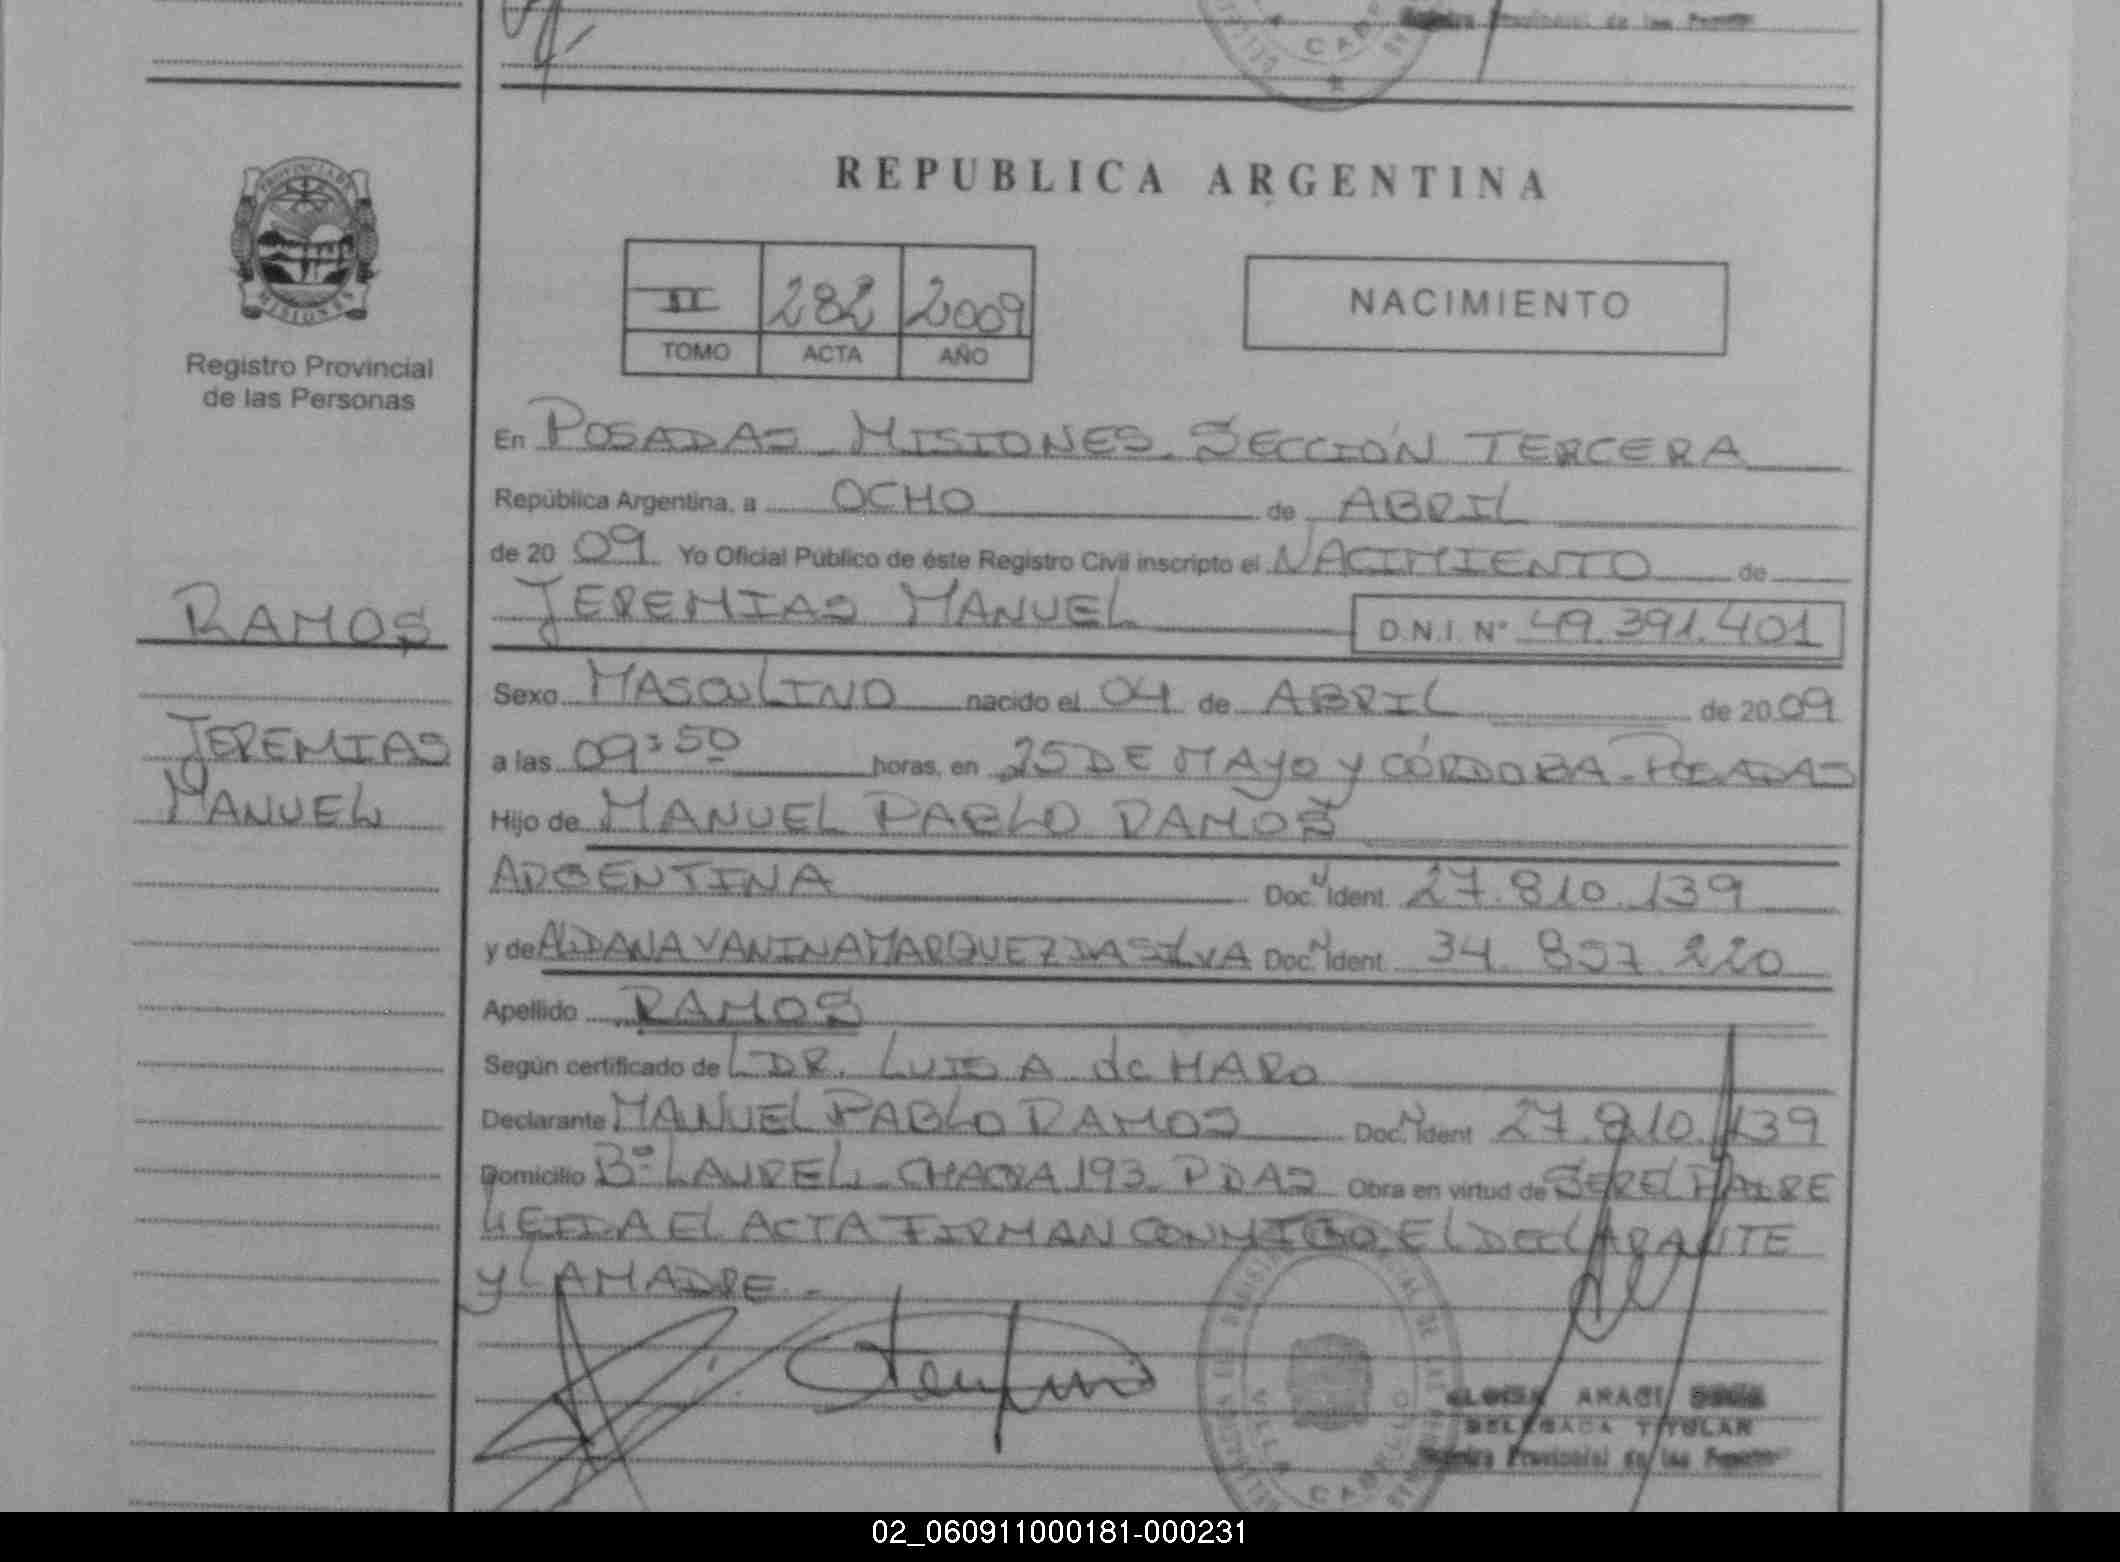 PROVINCIA DE
MISIONES
Registro Provincial
de las Personas
RAMOS
JEREMIAS
MANUEL
REPUBLICA ARGENTINA
II 282 2009
TOMO ACTA AÑO
NACIMIENTO
En POSADAS - MISIONES. SECCIÓN TERCERA
República Argentina, a OCHO de ABRIL
de 20 09. Yo Oficial Público de éste Registro Civil inscripto el NACIMIENTO de
JEREMIAS MANUEL D.N.I. Nº 49.391.401
Sexo MASCULINO nacido el 04 de ABRIL de 20 09
a las 09:50 horas, en 25 DE MAYO y CÓRDOBA - POSADAS
Hijo de MANUEL PABLO RAMOS
ARGENTINA Doc. Ident. 27.810.139
y de ALDANA VANINA MARQUEZ DA SILVA Doc. Ident. 34.857.220
Apellido RAMOS
Según certificado de DR. LUIS A de HARO
Declarante MANUEL PABLO RAMOS Doc. Ident 27.810.139
Domicilio Bº LAUREL - CHACRA 193 - PDAS Obra en virtud de SER EL PADRE
LEIDA EL ACTA FIRMAN CONMIGO EL DECLARANTE
y LA MADRE.-
VILLA CABELLO
DELEGADA TITULAR
Registro Provincial de las Personas
02_060911000181-000231